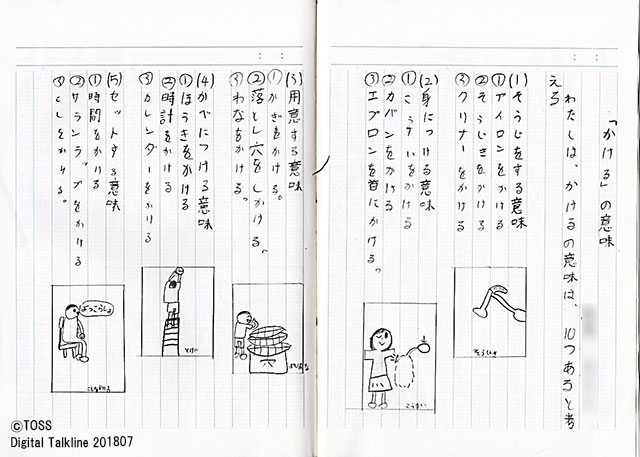 「かける」の意味
わたしは、かけるの意味は、10つあると考
える
(1)そうじをする意味
①アイロンをかける
②そうじきをかける
③クリナーをかける
(2)身につける意味
①こうすいをかける
②カバンをかける
③エプロンを首にかける。
そうじき
こうすい
(3)用意する意味
①かぎをかける。
②落とし穴をしかける。
③わなをかける。
(4)かべにつける意味
①ほうきをかける
②時計をかける
③カレンダーをかける
(5)セットする意味
①時間をかける
②サランラップをかける
③こしをかける。
穴
とけい
よっこらしょ
こしをかける
©TOSS
Digital Talkline 201807